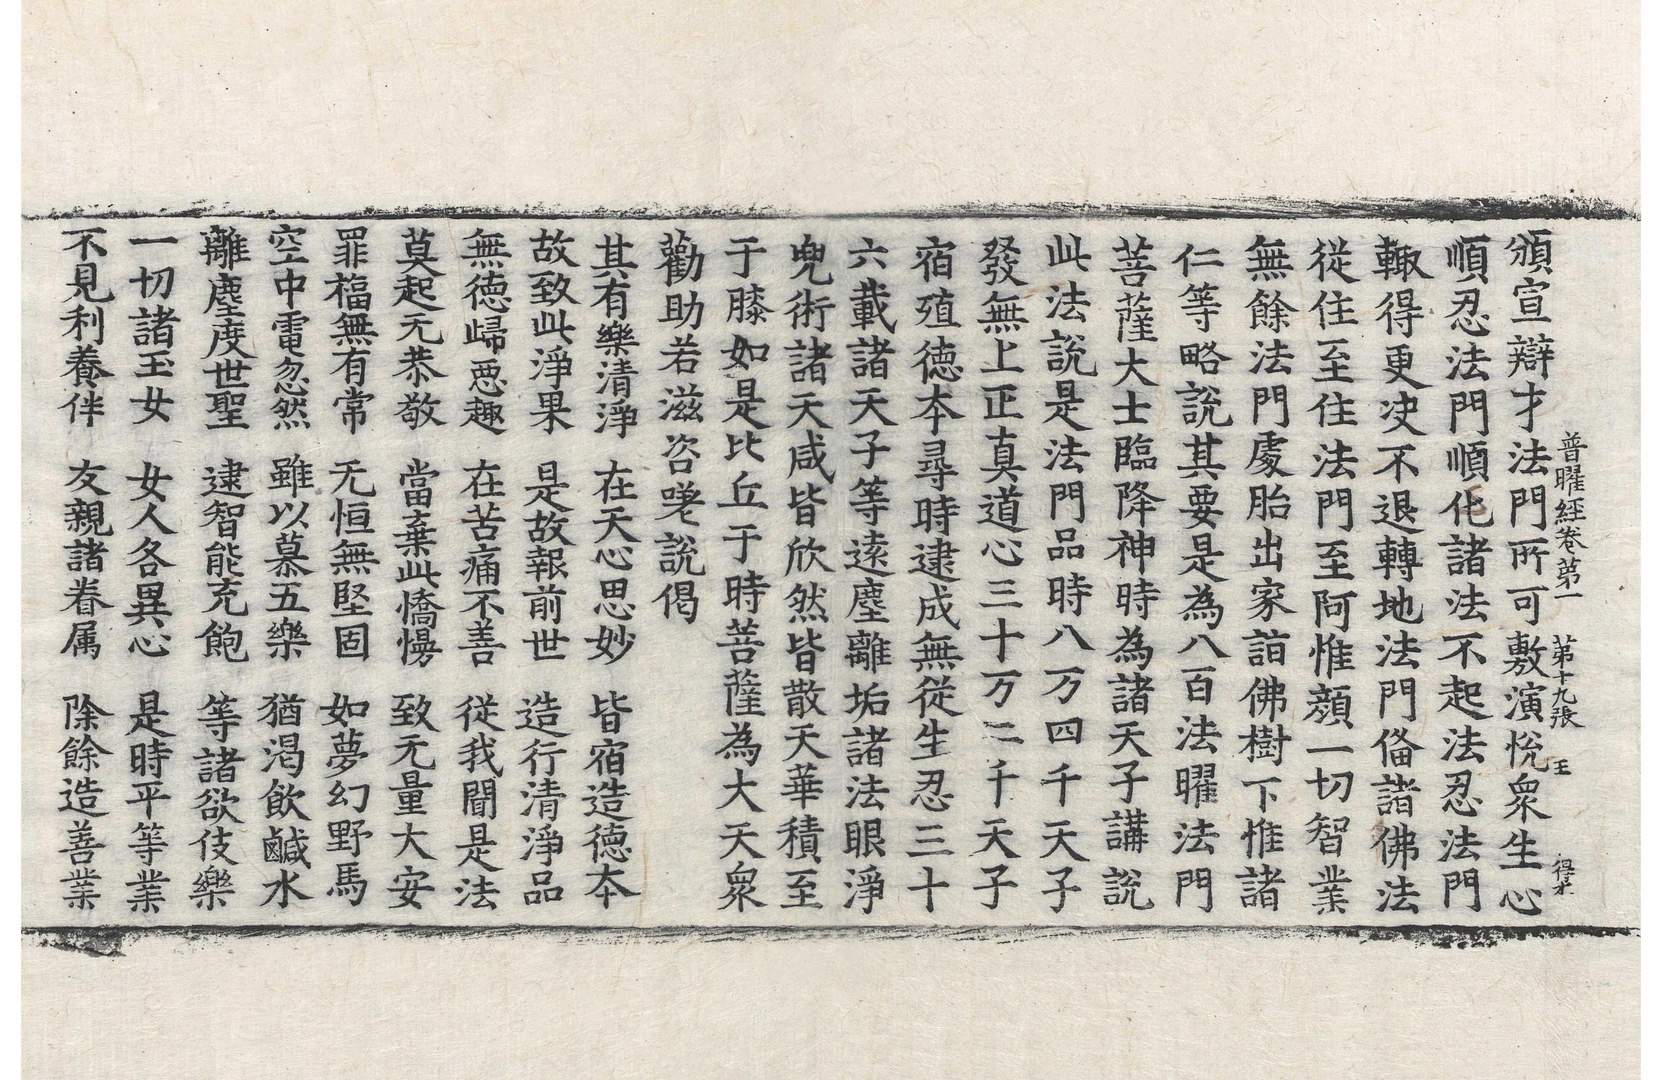 普曜經卷第一 第十九張 王
頒宣辯才法門所可敷演悅衆生心
順忍法門順化諸法不起法忍法門
輙得更决不退轉地法門俻諸佛法
從住至住法門至阿惟顔一切智業
無餘法門處胎出家詣佛樹下惟諸
仁等略說其要是為八百法曜法門
菩薩大士臨降神時為諸天子講說
此法說是法門品時八万四千天子
發無上正真道心三十万二千天子
宿殖德夲尋時逮成無從生忍三十
六載諸天子等遠塵離垢諸法眼淨
兜術諸天咸皆欣然皆散天華積至
于膝如是比丘于時菩薩為大天衆
勸助若滋咨嗟說偈
其有樂清淨 在天心思妙 皆宿造德夲
故致此淨果 是故報前世 造行清淨品
無德歸惡趣 在苦痛不善 從我聞是法
莫起无恭敬 當棄此憍慢 致无量大安
罪福無有常 无恒無堅固 如夢幻野馬
空中電忽然 雖以慕五樂 猶渴飲鹹水
離塵度世聖 逮智能充飽 等諸欲伎樂
一切諸玉女 女人各異心 是時平等業
不見利養伴 友親諸眷属 除餘造善業